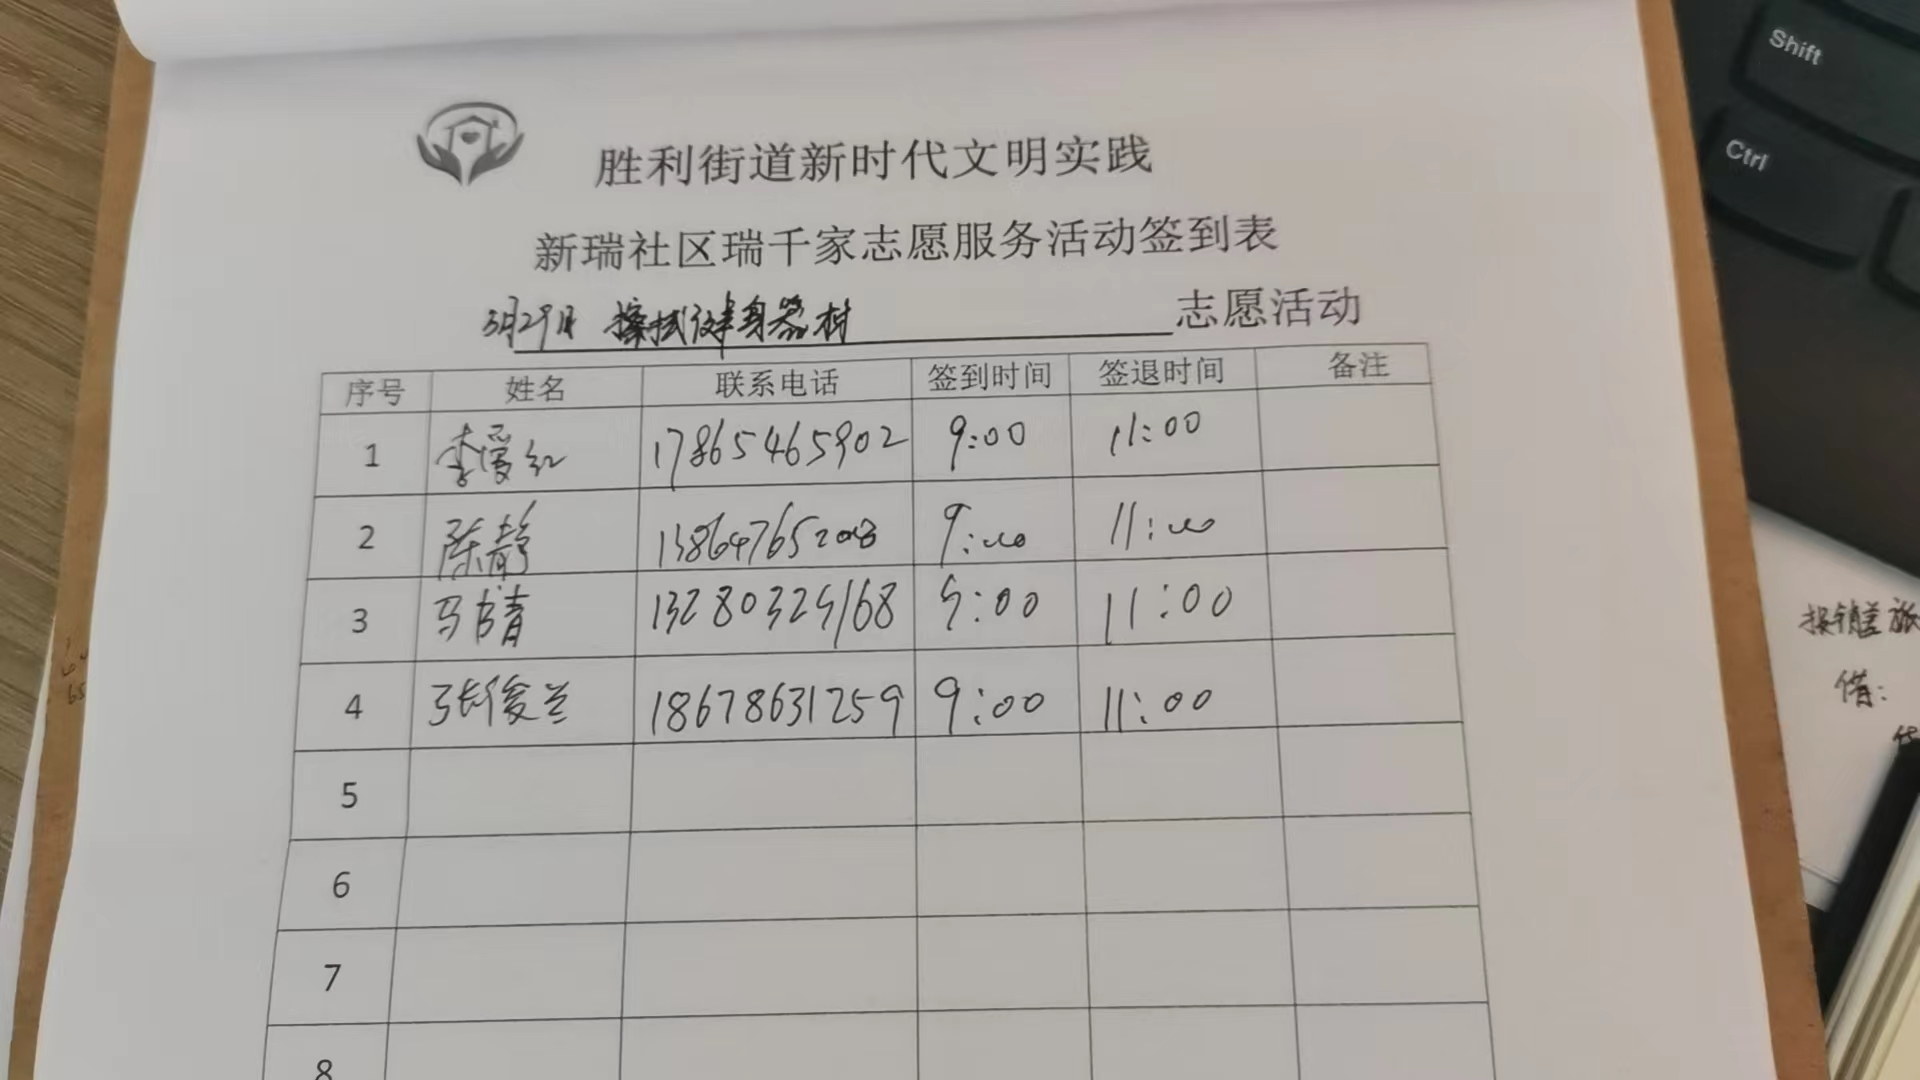 胜利街道新时代文明实践
新瑞社区瑞千家志愿服务活动签到表
3月29日 擦拭健身器材 志愿活动
序号 姓名 联系电话 签到时间 签退时间 备注
1 李爱红 17865465902 9:00 11:00
2 陈静 13864765208 9:00 11:00
3 马倩 13280325168 9:00 11:00
4 张俊兰 18678631259 9:00 11:00
5
6
7
8
Shift
Ctrl
报销差旅
借: